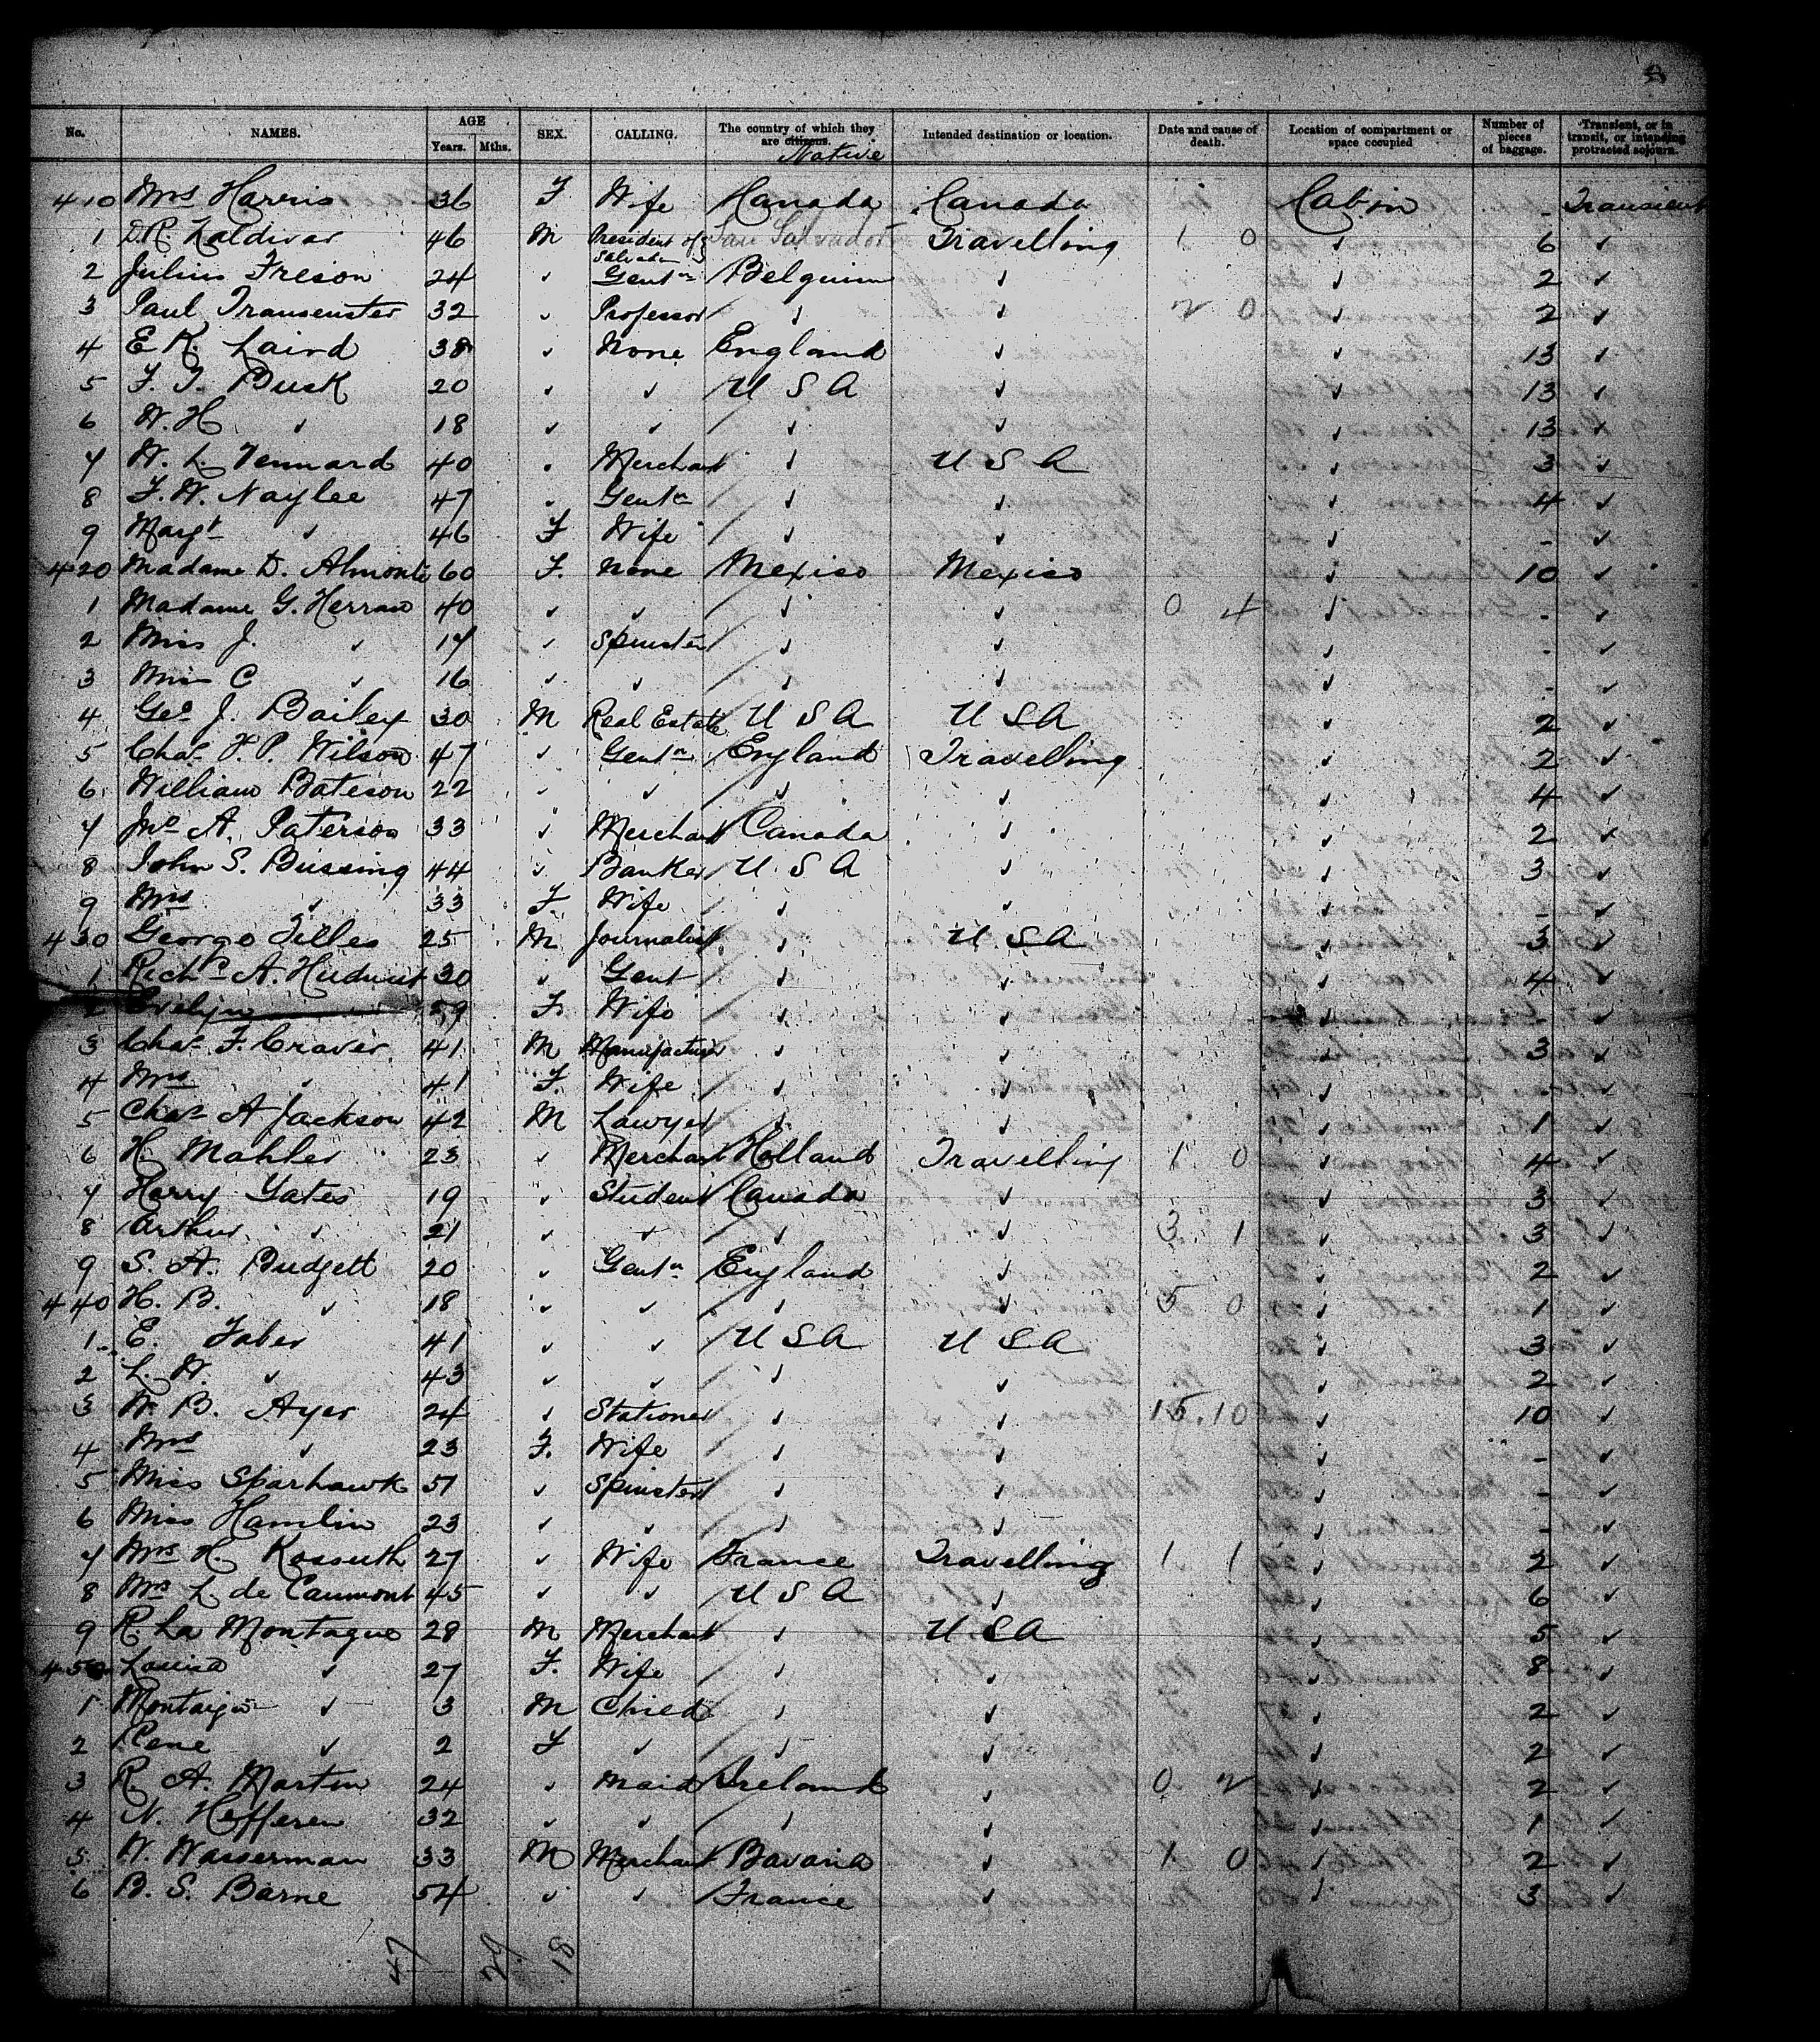 No. NAMES. AGE Years. Mths. SEX. CALLING. The country of which they are citizens. Native Intended destination or location. Date and cause of death. Location of compartment or space occupied Number of pieces of baggage. Transient, or in transit, or intending protracted sojourn.
410 Mrs Harris 36 F Wife Canada Canada Cabin - Transient
1 D.R. Zaldivar 46 M President of Salvador San Salvador Travelling 1 0 ✓ 6 ✓
2 Julius Freson 24 ✓ Gentn Belgium ✓ ✓ 2 ✓
3 Paul Trasenster 32 ✓ Professor ✓ ✓ 2 0 ✓ 2 ✓
4 E K. Laird 38 ✓ None England ✓ ✓ 13 ✓
5 F. T. Busk 20 ✓ ✓ U S A ✓ ✓ 13 ✓
6 W. H ✓ 18 ✓ ✓ ✓ ✓ ✓ 13 ✓
7 W. L. Tennard 40 ✓ Merchant ✓ U S A ✓ 3 ✓
8 F. W. Naylee 47 ✓ Gentn ✓ ✓ ✓ 4 ✓
9 Margt ✓ 46 F Wife ✓ ✓ ✓ - ✓
420 Madame D. Almonte 60 F. None Mexico Mexico ✓ 10 ✓
1 Madame G. Herran 40 ✓ ✓ ✓ ✓ 0 4 ✓ - ✓
2 Miss J. ✓ 17 ✓ Spinster ✓ ✓ ✓ - ✓
3 Miss C ✓ 16 ✓ ✓ ✓ ✓ ✓ - ✓
4 Geo J. Bailey 30 M Real Estate U S A U S A ✓ 2 ✓
5 Chas F. P. Wilson 47 ✓ Gentn England Travelling ✓ 2 ✓
6 William Bateson 22 ✓ ✓ ✓ ✓ ✓ 4 ✓
7 Jno A. Paterson 33 ✓ Merchant Canada ✓ ✓ 2 ✓
8 John S. Bussing 44 ✓ Banker U S A ✓ ✓ 3 ✓
9 Mrs ✓ 33 F. Wife ✓ ✓ ✓ - ✓
430 George Tilles 25 M Journalist ✓ U S A ✓ 3 ✓
1 Richd A. Hudnut 30 ✓ Gent ✓ ✓ ✓ 4 ✓
2 Evelyn F. Wife ✓ ✓ ✓ - ✓
3 Chas F. Craver 41 M Manufacturer ✓ ✓ ✓ 3 ✓
4 Mrs ✓ 41 F. Wife ✓ ✓ ✓ - ✓
5 Chas A Jackson 42 M Lawyer ✓ ✓ ✓ 1 ✓
6 H. Mahler 23 ✓ Merchant Holland Travelling 1 0 ✓ 4 ✓
7 Harry Yates 19 ✓ Student Canada ✓ ✓ 3 ✓
8 Arthur ✓ 21 ✓ ✓ ✓ ✓ 3 1 ✓ 3 ✓
9 S. A. Budgett 20 ✓ Gentn England ✓ ✓ 2 ✓
440 H. B. ✓ 18 ✓ ✓ ✓ ✓ 5 0 ✓ 1 ✓
1 E. Faber 41 ✓ ✓ U S A U S A ✓ 3 ✓
2 L. W. ✓ 43 ✓ ✓ ✓ ✓ ✓ 2 ✓
3 W. B. Ayer 24 ✓ Stationer ✓ ✓ 15.10 ✓ 10 ✓
4 Mrs ✓ 23 F. Wife ✓ ✓ ✓ - ✓
5 Miss Sparhawk 51 ✓ Spinster ✓ ✓ ✓ - ✓
6 Miss Hamlin 23 ✓ ✓ ✓ ✓ ✓ - ✓
7 Mrs H. Kossuth 27 ✓ Wife France Travelling 1 1 ✓ 2 ✓
8 Mrs L de Caumont 45 ✓ ✓ U S A ✓ ✓ 6 ✓
9 R. La Montague 28 M Merchant ✓ U S A ✓ 5 ✓
450 Louisa ✓ 27 F. Wife ✓ ✓ ✓ 8 ✓
1 Montaign ✓ 3 M Child ✓ ✓ ✓ 2 ✓
2 Rene ✓ 2 F ✓ ✓ ✓ ✓ 2 ✓
3 R. A. Martin 24 ✓ Maid Ireland ✓ 0 2 ✓ 2 ✓
4 N. Hefferen 32 ✓ ✓ ✓ ✓ ✓ 1 ✓
5 W. Wasserman 33 M Merchant Bavaria ✓ 1 0 ✓ 2 ✓
6 B. S. Barne 54 ✓ ✓ France ✓ ✓ 3 ✓
47 29 18